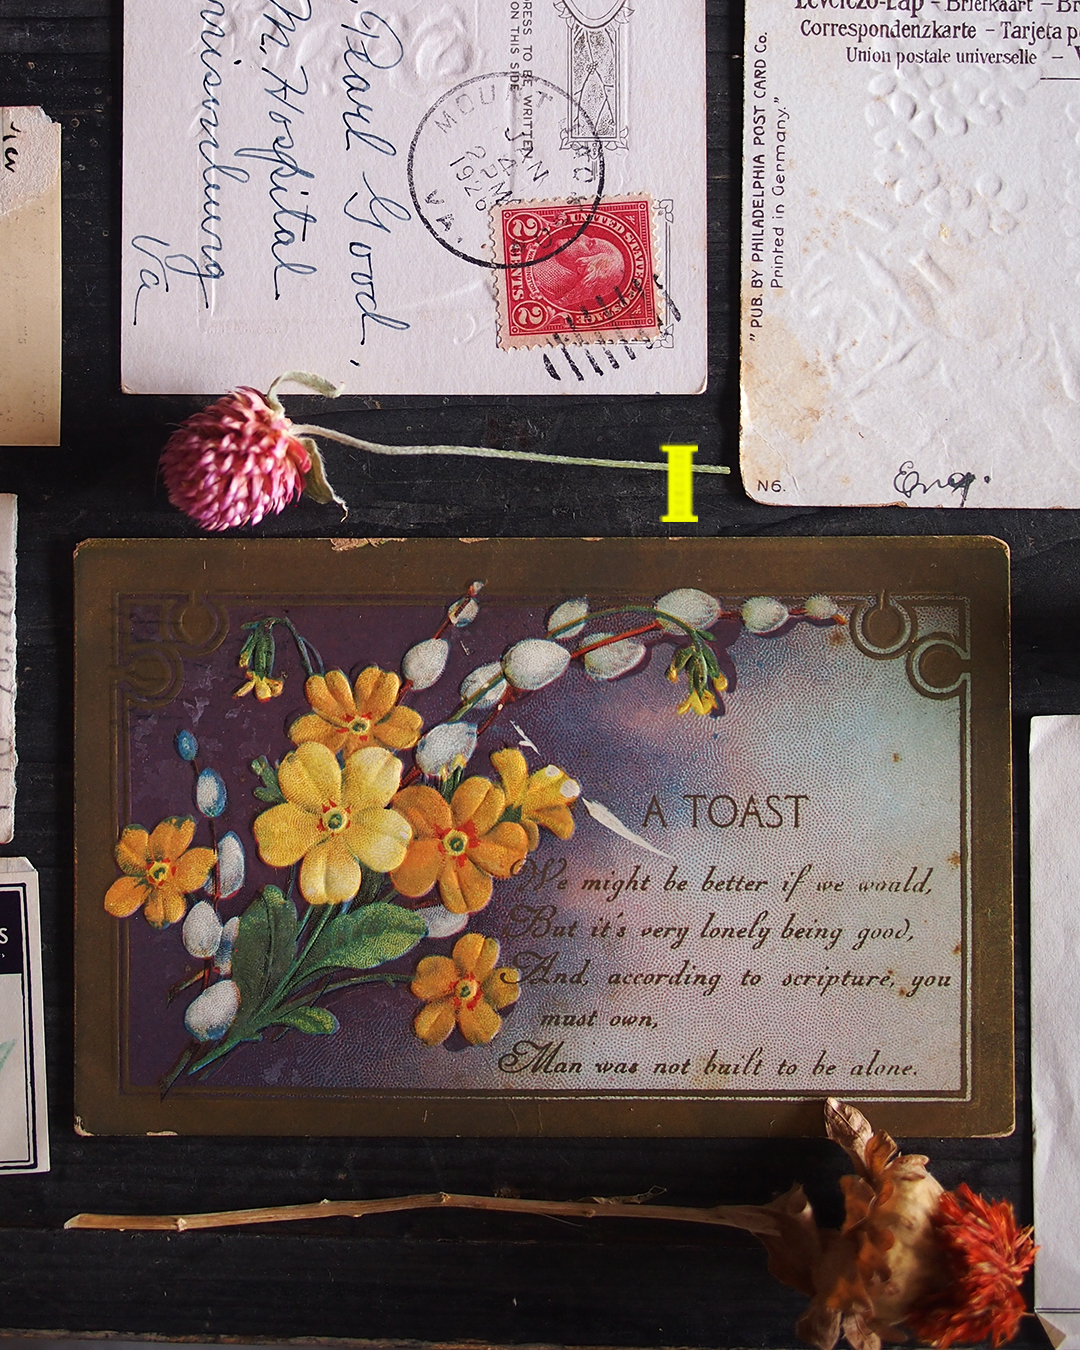 Pearl Good,
M. Hospital
Va
RESS TO BE WRITTEN
ON THIS SIDE
MOUNT
JAN
4
2 PM
1926
VA.
UNITED STATES POSTAGE
2 CENTS 2
Levelezo-Lap – Brievkaart –
Correspondenzkarte – Tarjeta
Union postale universelle –
"PUB. BY PHILADELPHIA POST CARD Co.
Printed in Germany."
N6.
Eng.
I
A TOAST
We might be better if we would,
But it's very lonely being good,
And, according to scripture, you
must own,
Man was not built to be alone.
S